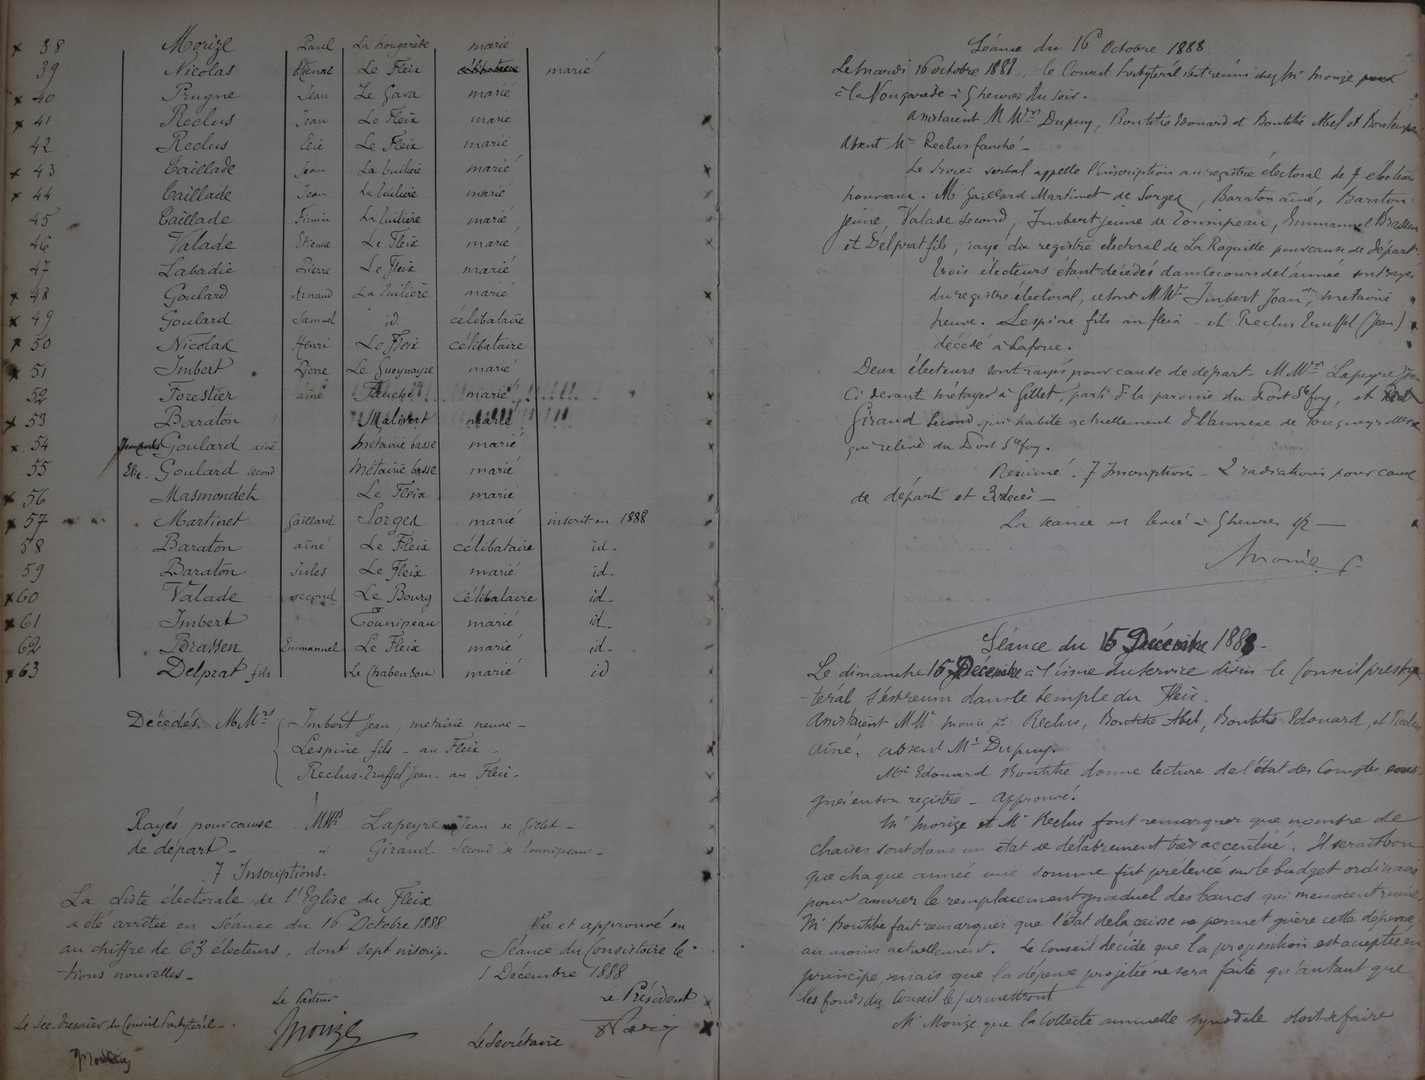 x 38 Morize Paul La Nougarède marié
39 Nicolas Etienne Le Fleix célibataire marié
x 40 Prugne Jean Le Gava marié
x 41 Reclus Jean Le Fleix marié
42 Reclus Elie Le Fleix marié
x 43 Taillade Jean La Tuilière marié
x 44 Taillade Jean La Tuilière marié
45 Taillade Firmin La Tuilière marié
46 Valade Etienne Le Fleix marié
47 Labadie Pierre Le Fleix marié
x 48 Goulard Arnaud La Tuilière marié
x 49 Goulard Samuel id célibataire
x 50 Nicolas Henri Le Fleix célibataire
x 51 Imbert Pierre Le Gueynayze marié
52 Forestier aîné Fauché marié
x 53 Baraton Malivert marié
x 54 Goulard aîné Métairie basse marié
55 Elie. Goulard second Métairie basse marié
x 56 Masmondet Le Fleix marié
x 57 Martinet Gaillard Sorges marié inscrit en 1888
58 Baraton aîné Le Fleix célibataire id.
59 Baraton Jules Le Fleix marié id.
x 60 Valade second Le Bourg célibataire id.
x 61 Imbert Tounipeau marié id.
62 Brassen Emmanuel Le Fleix marié id.
x 63 Delprat fils Le Chabensou marié id
Décédés. M Mrs Imbert Jean, métairie neuve -
Lespine fils - au Fleix -
Reclus-Truffel Jean. au Fleix.
Rayés pour cause MMrs Lapeyre Jean de Gillet -
de départ - id Giraud Second de Tounipeau -
7 Inscriptions.
La Liste électorale de l'Eglise du Fleix
a été arrêtée en Séance du 16 Octobre 1888
au chiffre de 63 électeurs, dont sept inscrip-
tions nouvelles -
Vu et approuvé en
Séance du Consistoire le
1 Décembre 1888
Le Pasteur
Le Président
Le Sec-Trésorier du Conseil Presbytéral -
Morize
Le Secrétaire
Séance du 16 Octobre 1888
Le mardi 16 octobre 1888, le Conseil Presbytéral s'est réuni chez Mr Morize pour
à la Nougarède à 8 heures du soir.
Assistaient M Mrs Dupuy, Bontitre Edouard et Bontitre Abel et
Absent Mr Reclus fauché -
Le procès verbal appelle l'inscription au registre électoral de 7 électeurs
nouveaux. Mr Gaillard Martinet de Sorges, Baraton aîné, Baraton
jeune, Valade Second, Imbert jeune de Tounipeau, Emmanuel Brassen
et Delprat fils, rayé du registre électoral de La Roquille pour cause de départ.
Trois électeurs étant décédés dans le cours de l'année sont rayés
du registre électoral, ce sont M Mrs Imbert Jean, métairie
neuve. Lespine fils au fleix - et Reclus Truffel (Jean)
décédé à Lafoue.
Deux électeurs sont rayés pour cause de départ - M. Mrs Lapeyre Jean
Ci devant métayer à Gillet, parti de la paroisse du Port Ste foy, et
Giraud Second qui habite actuellement
qui relève du Port Ste foy.
Résumé. 7 Inscriptions - 2 radiations pour cause
de départ et 3 décès -
La séance est levée à 9 heures 1/2 -
Morize
Séance du 15 Décembre 1888 -
Le dimanche 15 Décembre à l'issue du service divin le Conseil presby-
-téral s'est réuni dans le temple du Fleix.
Assistaient M M Morize pt Reclus, Bontitre Abel, Bontitre Edouard, et
aîné, absent Mr Dupuy.
Mr Edouard Bontitre donne lecture de l'état des Comptes,
registre - Approuvé.
Mr Morize et Mr Reclus font remarquer que nombre de
chaises sont dans un état de délabrement très accentué. Il serait bon
que chaque année une somme fut prélevée sur le budget ordinaire
pour assurer le remplacement graduel des bancs qui menacent ruine.
Mr Bontitre fait remarquer que l'état de la caisse ne permet guère cette dépense
au moins actuellement. Le Conseil décide que la proposition est acceptée en
principe, mais que la dépense projetée ne sera faite qu'autant que
les fonds du Conseil le permettront
Mr Morize que la Collecte annuelle synodale doit se faire